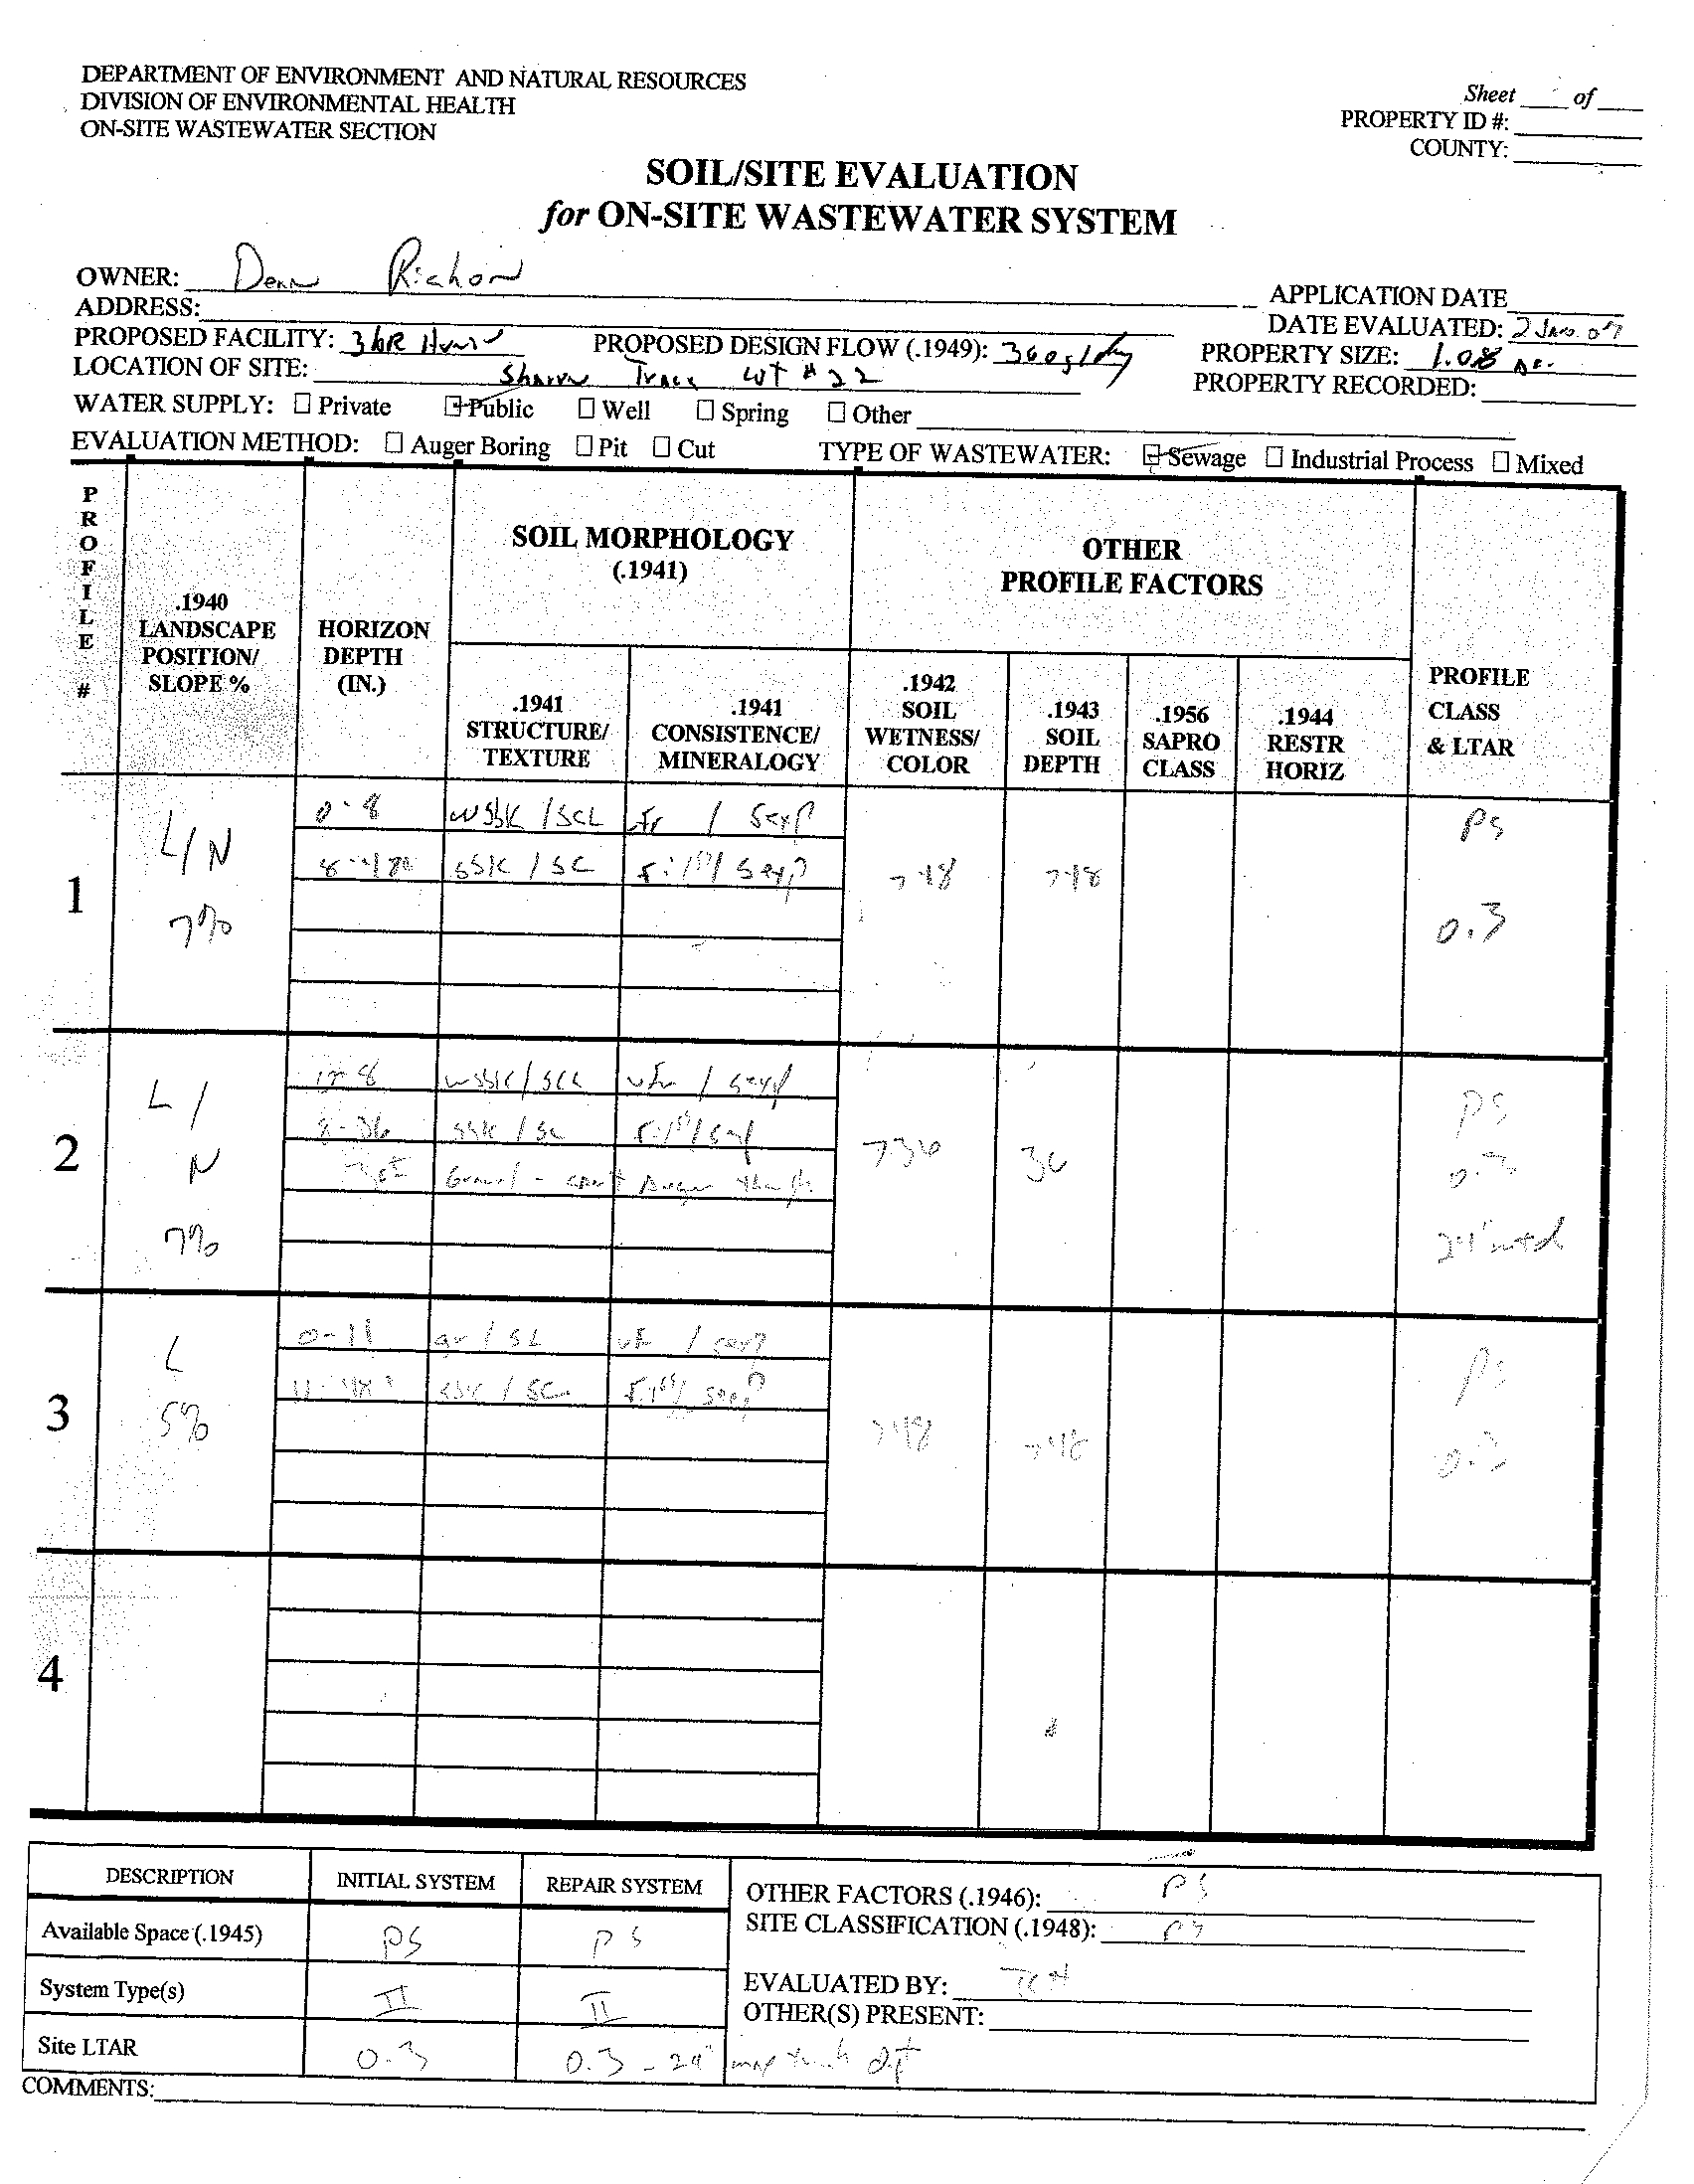 DEPARTMENT OF ENVIRONMENT AND NATURAL RESOURCES
DIVISION OF ENVIRONMENTAL HEALTH
ON-SITE WASTEWATER SECTION
Sheet ____ of ____
PROPERTY ID #:
COUNTY:
SOIL/SITE EVALUATION
for ON-SITE WASTEWATER SYSTEM
OWNER: Dean
APPLICATION DATE
ADDRESS:
DATE EVALUATED: 2 Jan. 07
PROPOSED FACILITY: 3 BR PROPOSED DESIGN FLOW (.1949): 360 g/day PROPERTY SIZE: 1.08 Ac.
LOCATION OF SITE: # 22 PROPERTY RECORDED:
WATER SUPPLY: ☐ Private ☑ Public ☐ Well ☐ Spring ☐ Other
EVALUATION METHOD: ☐ Auger Boring ☐ Pit ☐ Cut TYPE OF WASTEWATER: ☑ Sewage ☐ Industrial Process ☐ Mixed
PROFILE #
.1940 LANDSCAPE POSITION/ SLOPE %
HORIZON DEPTH (IN.)
SOIL MORPHOLOGY (.1941)
.1941 STRUCTURE/ TEXTURE
.1941 CONSISTENCE/ MINERALOGY
OTHER PROFILE FACTORS
.1942 SOIL WETNESS/ COLOR
.1943 SOIL DEPTH
.1956 SAPRO CLASS
.1944 RESTR HORIZ
PROFILE CLASS & LTAR
1
L/N
7%
0-8 wsbk / SCL vfr / Sexp
8-48 sbk / SC Sexp
>48
>48
PS
0.3
2
L/
N
7%
0-8 wsbk / SCL vfr / Sexp
8-36 sbk / SC
Gravel - can't Auger
>36
36
PS
0.3
3
L
5%
0-11 gr / SL / sexp
11-48 sbk / SC sexp
>48
>48
PS
0.3
4
DESCRIPTION INITIAL SYSTEM REPAIR SYSTEM
Available Space (.1945) PS PS
System Type(s) II II
Site LTAR 0.3 0.3 - 24" max trench
OTHER FACTORS (.1946): PS
SITE CLASSIFICATION (.1948): PS
EVALUATED BY:
OTHER(S) PRESENT:
COMMENTS: